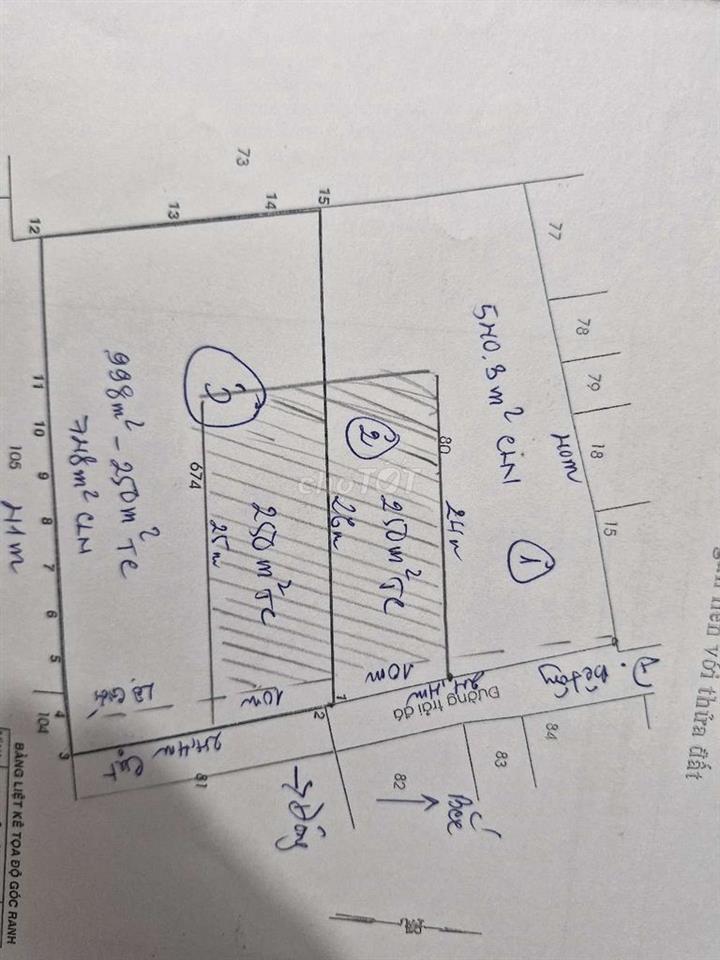 77
78
79
18
15
40m
540.3m² CLN
1
73
15
14
13
12
80
24m
2
250m² TC
26m
10m
3
674
250m² TC
25m
10m
998m² - 250m² TC
748m² CLN
11
10
9
8
7
6
5
4
3
2
1
105
41m
104
Đường trải đá
24,4m
81
82
83
84
Bắc
→ Đông
gắn liền với thửa đất
BẢNG LIỆT KÊ TỌA ĐỘ GÓC RANH
choTỐT